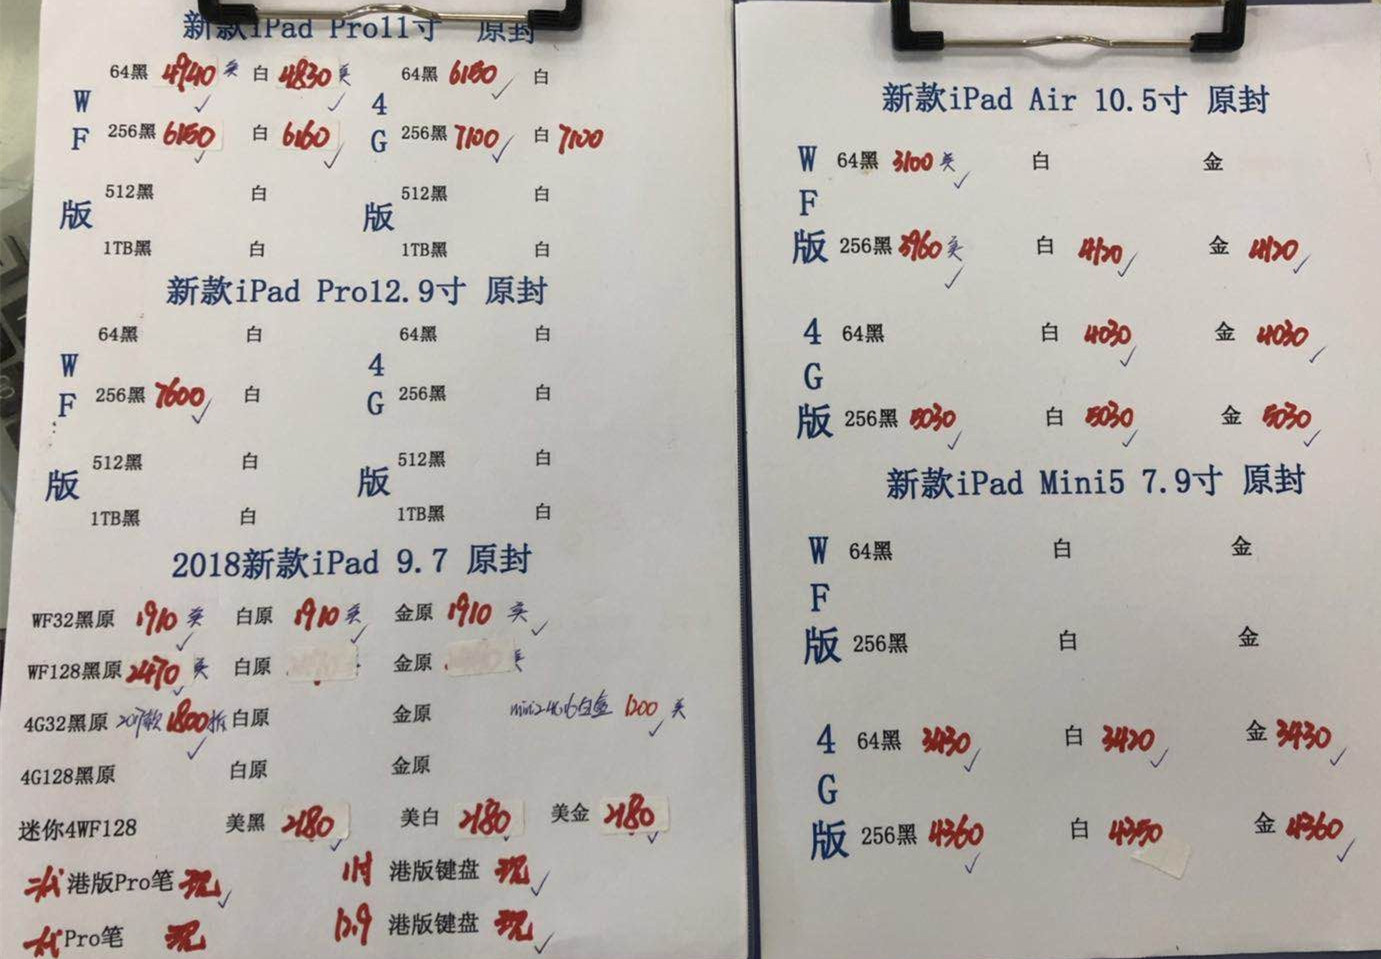 新款iPad Pro11寸 原封
64黑 4940 美 白 4830 美 64黑 6150 白
WF版 4G版
256黑 6150 白 6160 256黑 7100 白 7100
512黑 白 512黑 白
1TB黑 白 1TB黑 白
新款iPad Pro12.9寸 原封
64黑 白 64黑 白
WF版 4G版
256黑 7600 白 256黑 白
512黑 白 512黑 白
1TB黑 白 1TB黑 白
2018新款iPad 9.7 原封
WF32黑原 1910 美 白原 1910 美 金原 1910 美
WF128黑原 2470 美 白原 金原 美
4G32黑原 2017款 1800 拆 白原 金原 1200 美
4G128黑原 白原 金原
迷你4WF128 美黑 2180 美白 2180 美金 2180
二代 港版Pro笔 现 11寸 港版键盘 现
一代 Pro笔 现 12.9 港版键盘 现
新款iPad Air 10.5寸 原封
WF版
64黑 3100 美 白 金
256黑 3960 美 白 4120 金 4120
4G版
64黑 白 4030 金 4030
256黑 5030 白 5030 金 5030
新款iPad Mini5 7.9寸 原封
WF版
64黑 白 金
256黑 白 金
4G版
64黑 3430 白 3420 金 3430
256黑 4360 白 4350 金 4360